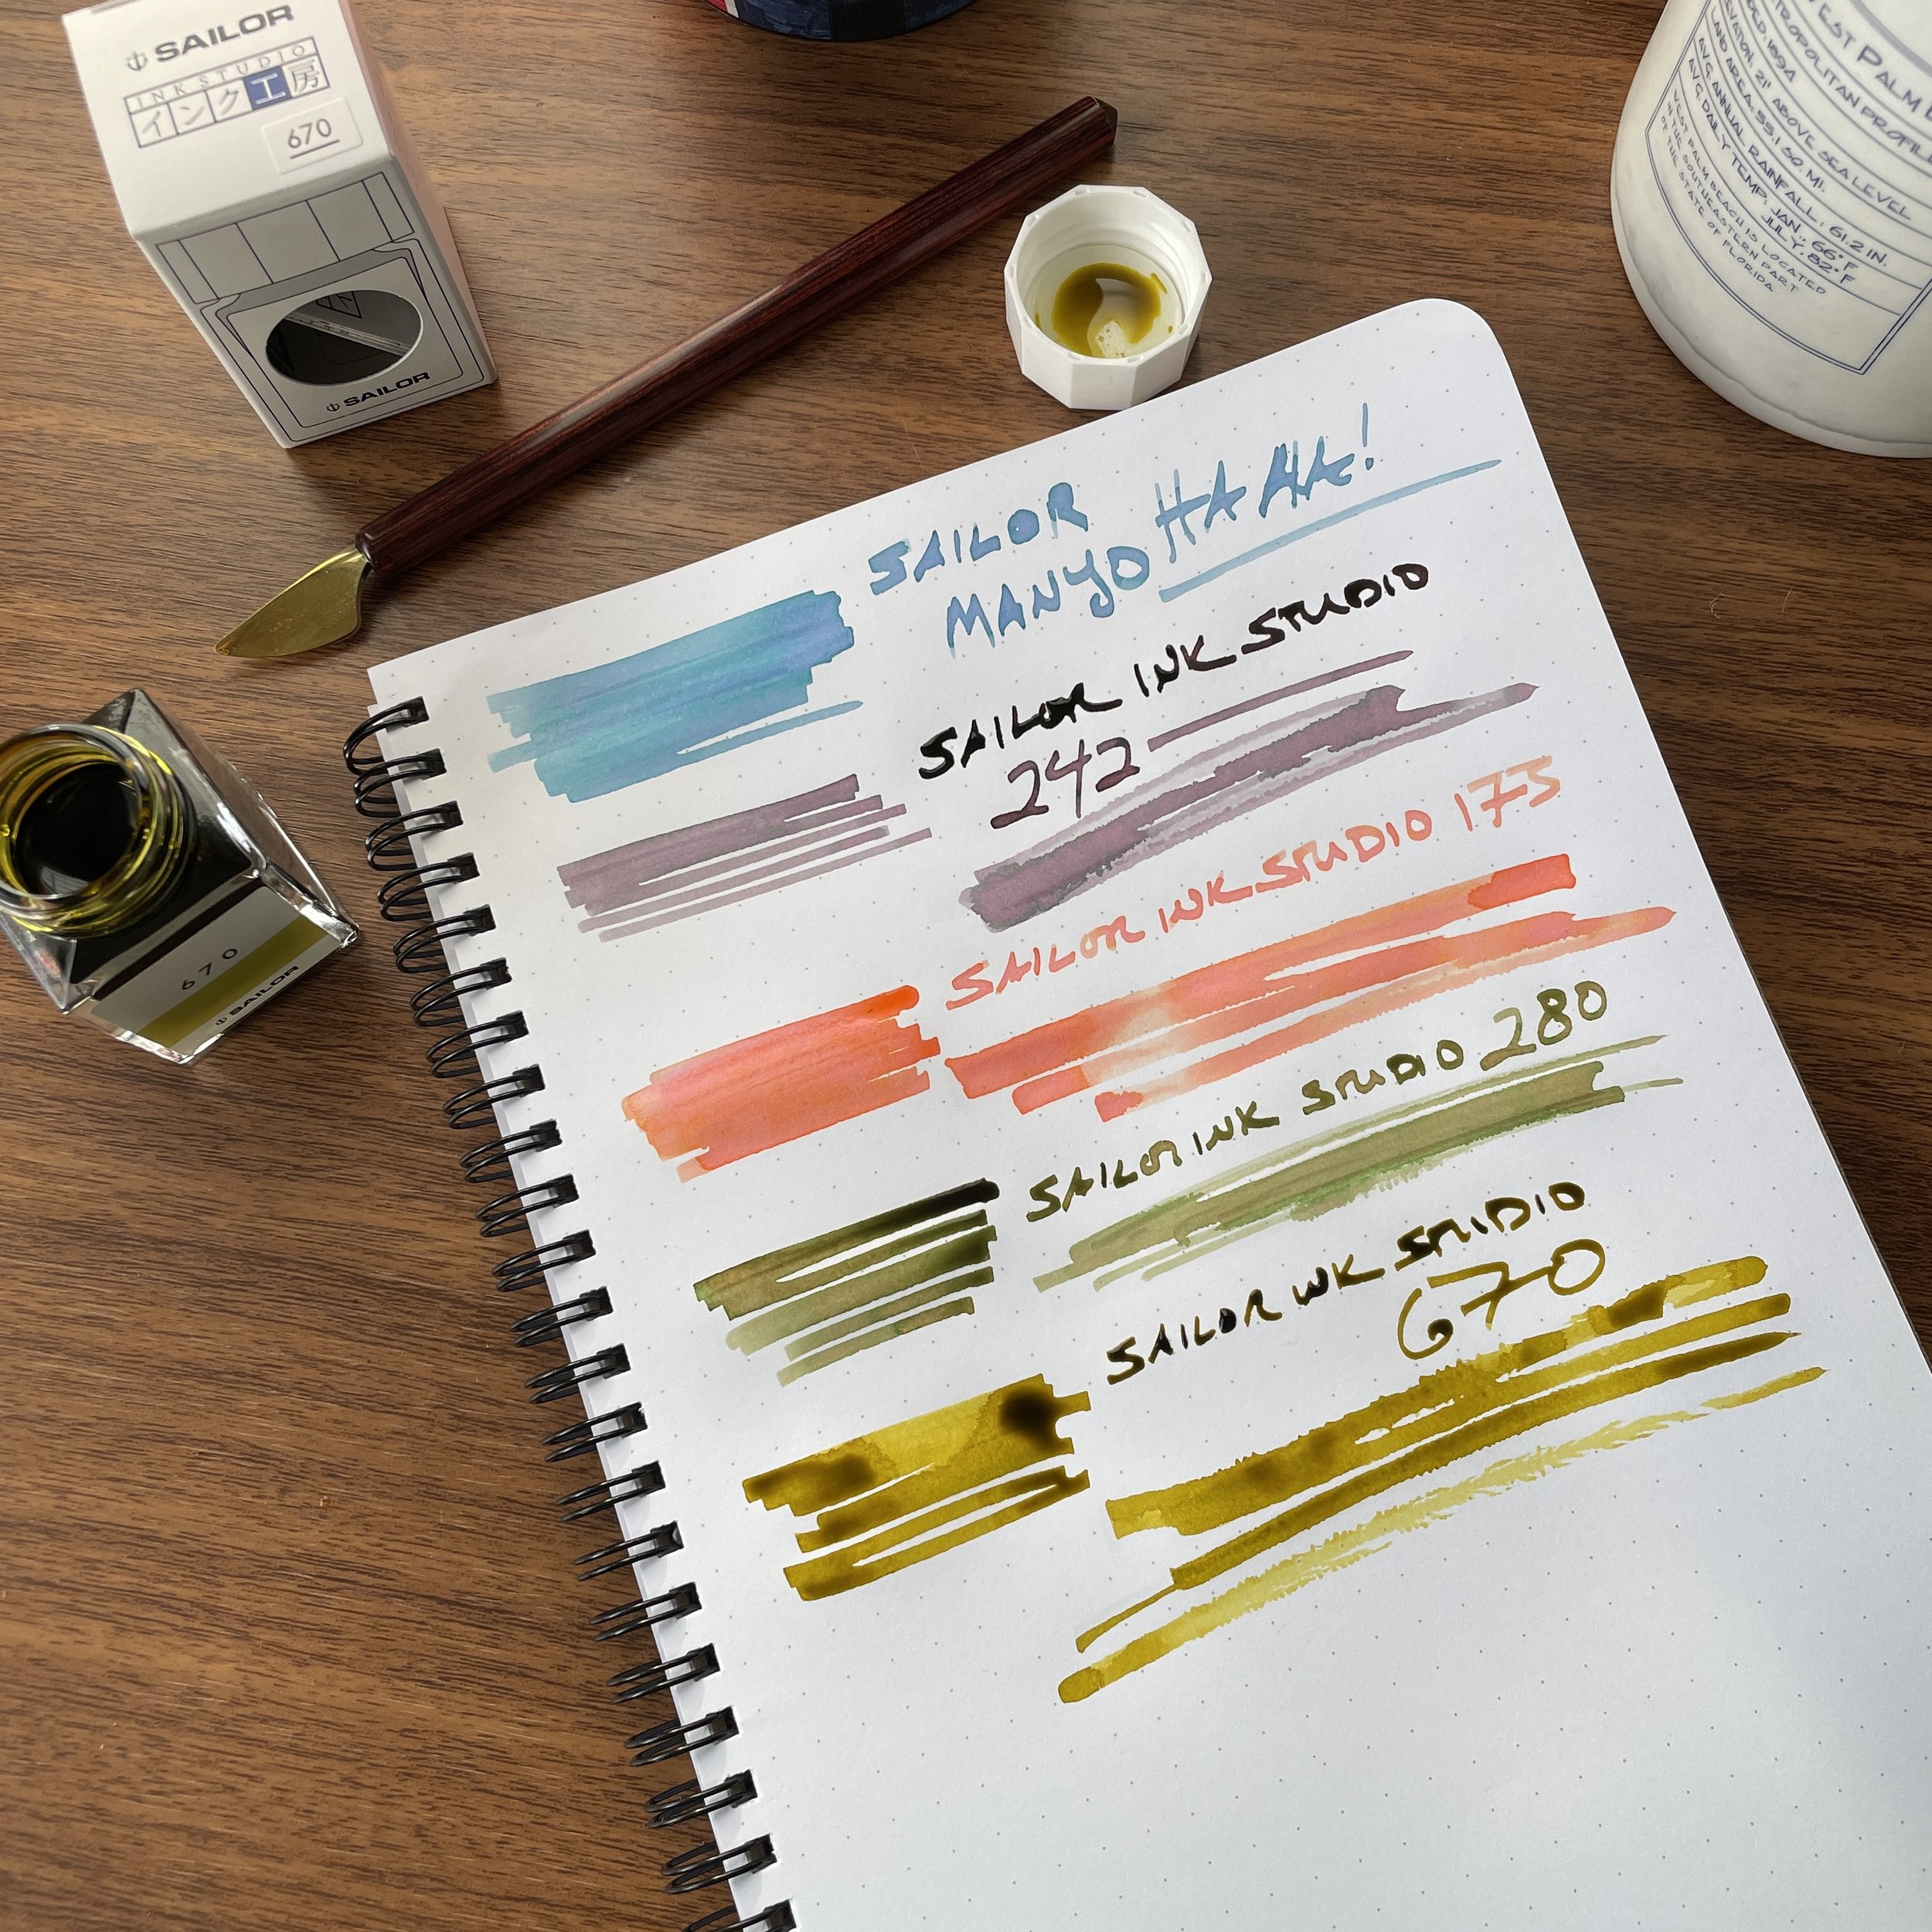 SAILOR
INK STUDIO
インク工房
670
SAILOR
WEST PALM
METROPOLITAN PROFILE
1894
ELEVATION: 21' ABOVE SEA LEVEL
LAND AREA: 55.1 SQ. MI.
AVG. ANNUAL RAINFALL: 61.2 IN.
AVG. DAILY TEMP: JAN.: 66°F
JULY: 82°F
WEST PALM BEACH IS LOCATED
IN THE SOUTHEASTERN PART
OF THE STATE OF FLORIDA
SAILOR
MANYO HA AHA!
SAILOR INK STUDIO
242
SAILOR INK STUDIO 173
SAILOR INK STUDIO 280
SAILOR INK STUDIO
670
670
SAILOR